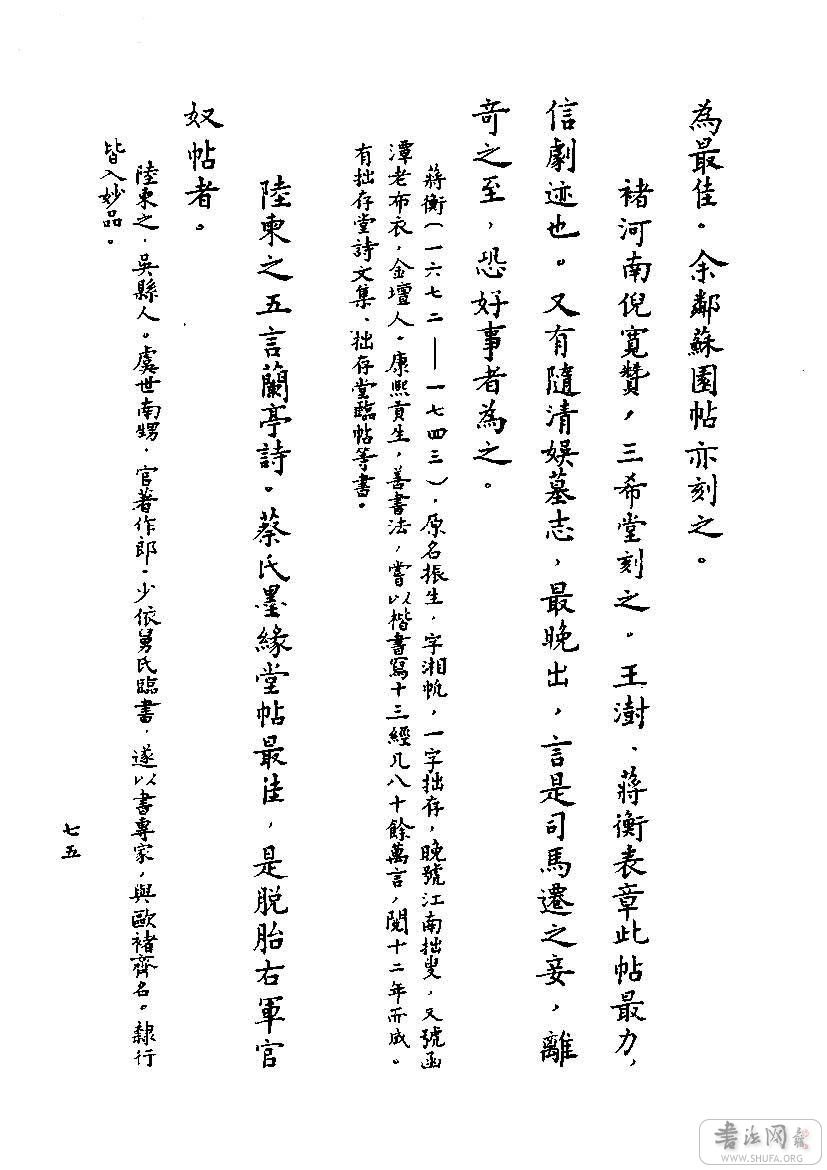 為最佳。余鄰蘇園帖亦刻之。
褚河南倪寬贊，三希堂刻之。王澍、蔣衡表章此帖最力，
信劇迹也。又有隨清娛墓志，最晚出，言是司馬遷之妾，離
奇之至，恐好事者為之。
蔣衡（一六七二——一七四三），原名振生，字湘帆，一字拙存，晚號江南拙叟，又號函
潭老布衣，金壇人。康熙貢生，善書法，嘗以楷書寫十三經凡八十餘萬言，閱十二年而成。
有拙存堂詩文集、拙存堂臨帖等書。
陸柬之五言蘭亭詩。蔡氏墨緣堂帖最佳，是脱胎右軍官
奴帖者。
陸柬之，吳縣人。虞世南甥，官著作郎。少依舅氏臨書，遂以書專家，與歐褚齊名。隸行
皆入妙品。
七五
書法网
WWW.SHUFA.ORG